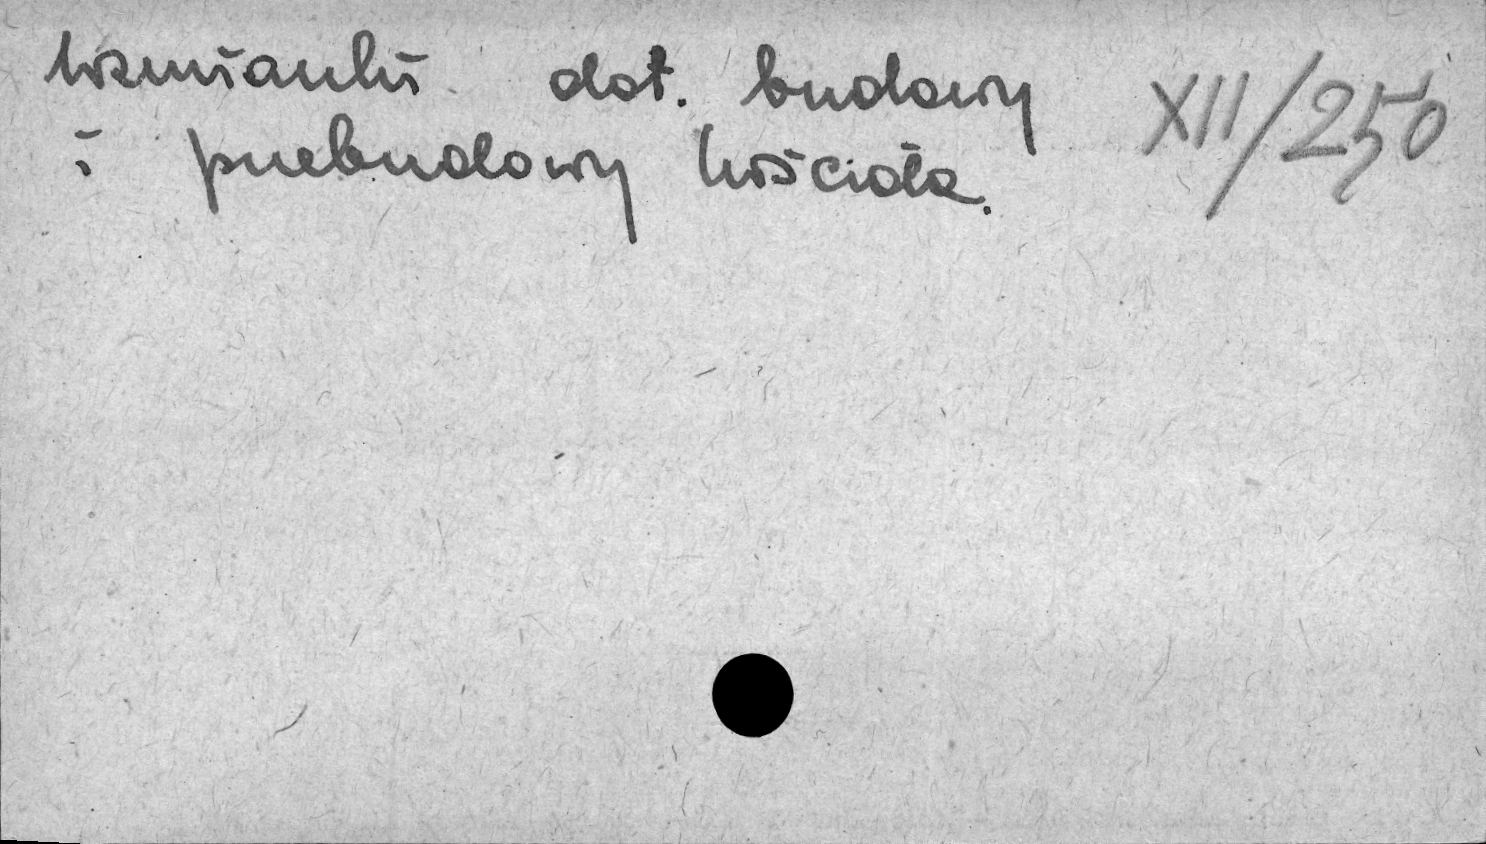 wzmianki dot. budowy XII/250
i przebudowy kościoła.